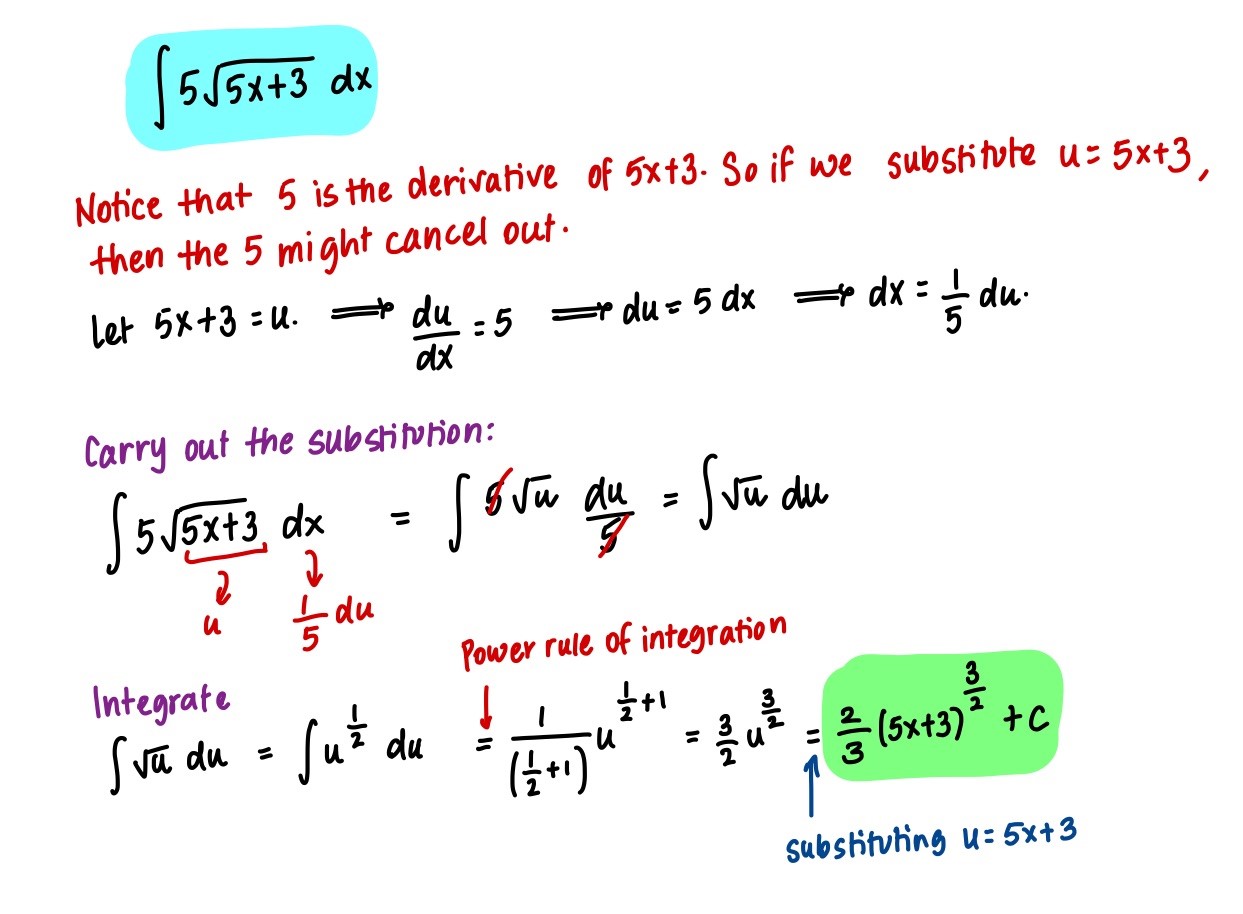 ∫ 5√(5x+3) dx
Notice that 5 is the derivative of 5x+3. So if we substitute u = 5x+3,
then the 5 might cancel out.
Let 5x+3 = u. ⟹ du/dx = 5 ⟹ du = 5 dx ⟹ dx = 1/5 du.
Carry out the substitution:
∫ 5√(5x+3) dx = ∫ 5√u du/5 = ∫ √u du
u 1/5 du
Power rule of integration
Integrate
∫ √u du = ∫ u^(1/2) du = 1/(1/2+1) u^(1/2+1) = 3/2 u^(3/2) = 2/3 (5x+3)^(3/2) + C
substituting u = 5x+3